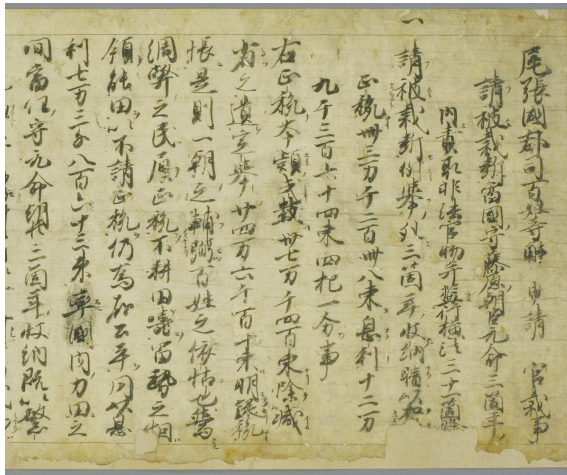 尾張國郡司百姓等解 申請 官裁事
請被裁斷當國守藤原朝臣元命三箇年
内責取非法官物并濫行横法三十一箇條
一 請被裁斷例擧外三箇年收納
正税卌三万千二百卌八束息利十二万
九千三百六十四束四把一分事
右正税本穎式數卌七万千四百束除減
省之遺定擧廿四万六千百十束明録税
帳是則一朝之輔弼百姓之依怙也焉
綢弊之民属正税不耕田疇富勢之烟
領能田以不請正税仍為以息
利七万三千八百六十三束率國内力田之
間當任守元命朝臣三箇年收納既繁